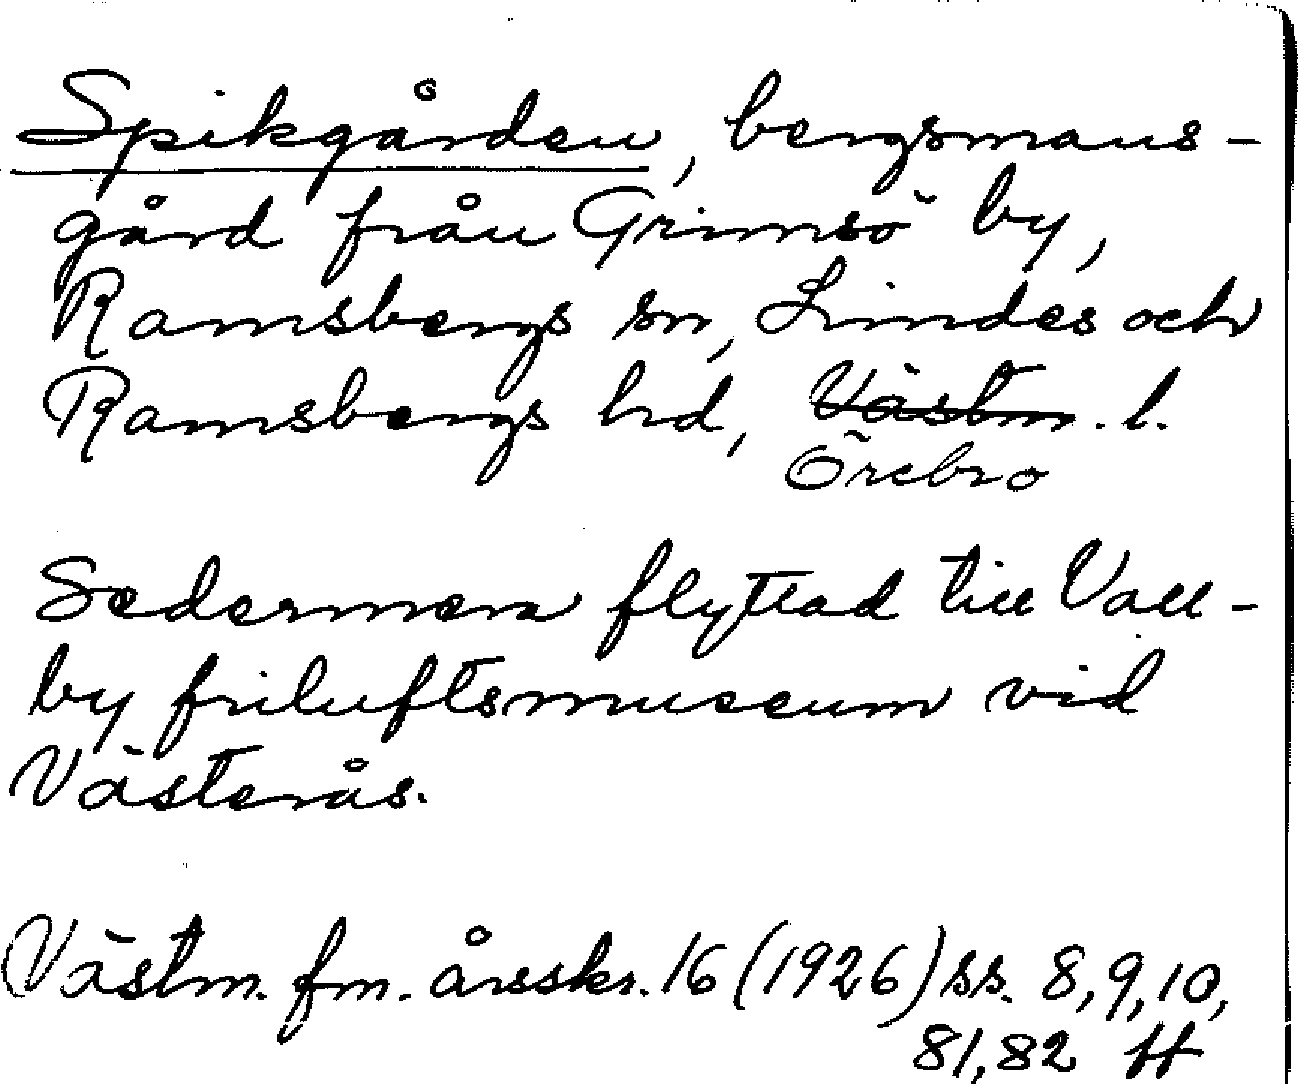 Spikgården, bergsmans-
gård från Grimsö by,
Ramsbergs sn, Lindes och
Ramsbergs hd, Västm. l.
Örebro
Sedermera flyttad till Vall-
by friluftsmuseum vid
Västerås.
Västm. fm. årsskr. 16 (1926) ss. 8, 9, 10,
81, 82 ff